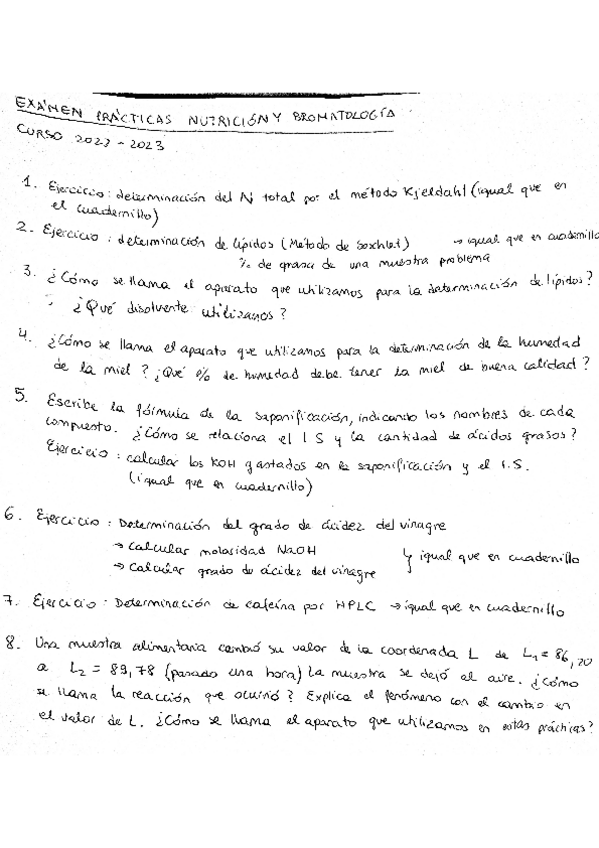 EXÁMEN PRÁCTICAS NUTRICIÓN Y BROMATOLOGÍA
CURSO 2022-2023
1. Ejercicio: determinación del N total por el método Kjeldahl (igual que en
el cuadernillo)
2. Ejercicio: determinación de lípidos (Método de Soxhlet) → igual que en cuadernillo
% de grasa de una muestra problema
3. ¿Cómo se llama el aparato que utilizamos para la determinación de lípidos?
¿Qué disolvente utilizamos?
4. ¿Cómo se llama el aparato que utilizamos para la determinación de la humedad
de la miel? ¿Qué % de humedad debe tener la miel de buena calidad?
5. Escribe la fórmula de la saponificación, indicando los nombres de cada
compuesto. ¿Cómo se relaciona el I S y la cantidad de ácidos grasos?
Ejercicio: calcular los KOH gastados en la saponificación y el I.S.
(igual que en cuadernillo)
6. Ejercicio: Determinación del grado de ácidez del vinagre
→ Calcular molaridad NaOH
→ Calcular grado de ácidez del vinagre } igual que en cuadernillo
7. Ejercicio: Determinación de cafeína por HPLC → igual que en cuadernillo
8. Una muestra alimentaria cambió su valor de la coordenada L de L1 = 86,20
a L2 = 89,78 (pasado una hora) la muestra se dejó al aire. ¿Cómo
se llama la reacción que ocurrió? Explica el fenómeno con el cambio en
el valor de L. ¿Cómo se llama el aparato que utilizamos en estas prácticas?